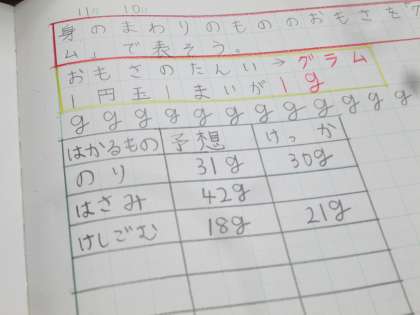 11/ 10/
身のまわりのもののおもさを「
ム」で表そう。
おもさのたんい→グラム
1円玉1まいが1g
g g g g g g g g g g g g g
はかるもの 予想 けっか
のり 31g 30g
はさみ 42g
けしごむ 18g 21g